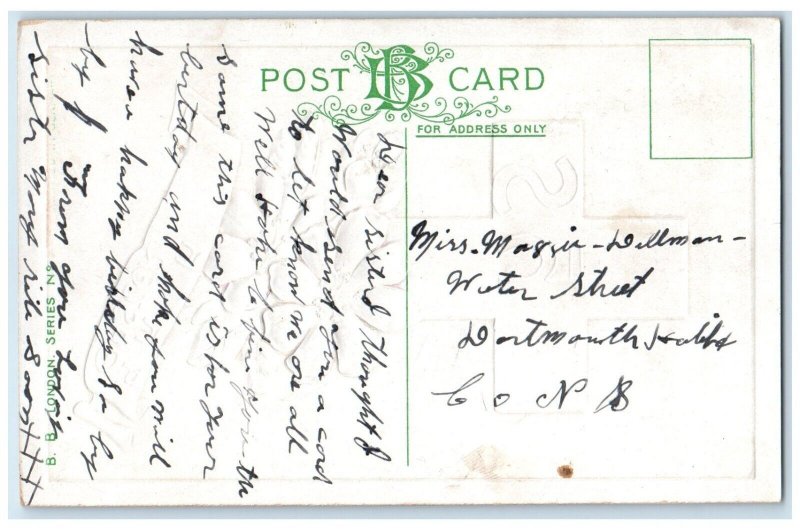 POST CARD
BB
FOR ADDRESS ONLY
Dear sister I thought I
Would send you a card
to let know we are all
Well Hope to find you the
same this card is for your
birthday and hope you will
have a happy birthday so by
by From your
sister
xxx
Miss. Maggie - Dillman -
Water Street
Dartmouth Halifx
Co N S
B. B. LONDON. SERIES No